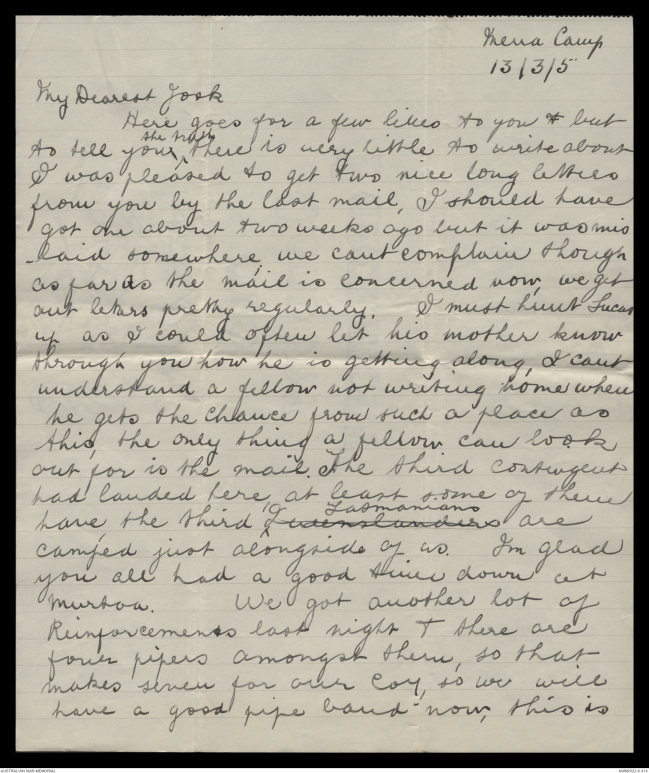 Mena Camp
13/3/5
My Dearest Josk
Here goes for a few lines to you & but
the truth
to tell you, there is very little to write about
I was pleased to get two nice long letters
from you by the last mail, I should have
got one about two weeks ago but it was mis
-laid somewhere, we cant complain though
as far as the mail is concerned now, we get
our letters pretty regularly. I must hunt Lucas
up as I could often let his mother know
through you how he is getting along, I cant
understand a fellow not writing home when
he gets the chance from such a place as
this, the only thing a fellow can look
out for is the mail. The third contingent
had landed here, at least some of them
Tasmanians
have, the third Queenslanders are
camped just alongside of us. Im glad
you all had a good time down at
Murtoa. We got another lot of
Reinforcements last night & there are
four pipers amongst them, so that
makes seven for our Coy, so we will
have a good pipe band now, this is
AUSTRALIAN WAR MEMORIAL